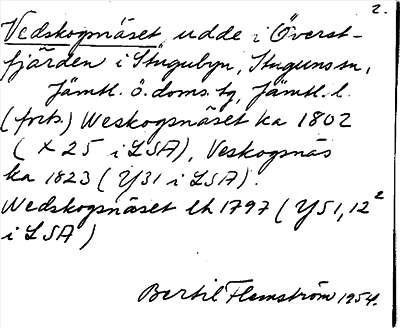 2.
Vedskogsnäset, udde i Överst-
fjärden i Stugubyn, Stuguns sn,
Jämtl. ö. doms. tg, Jämtl. l.
(forts.) Weskogsnäset ka 1802
(X 25 i LSA), Veskogsnäs
ka 1823 (Y31 i LSA).
Wedskogsnäset lh 1797 (Y51, 12²
i LSA)
Bertil Flemström 1954.